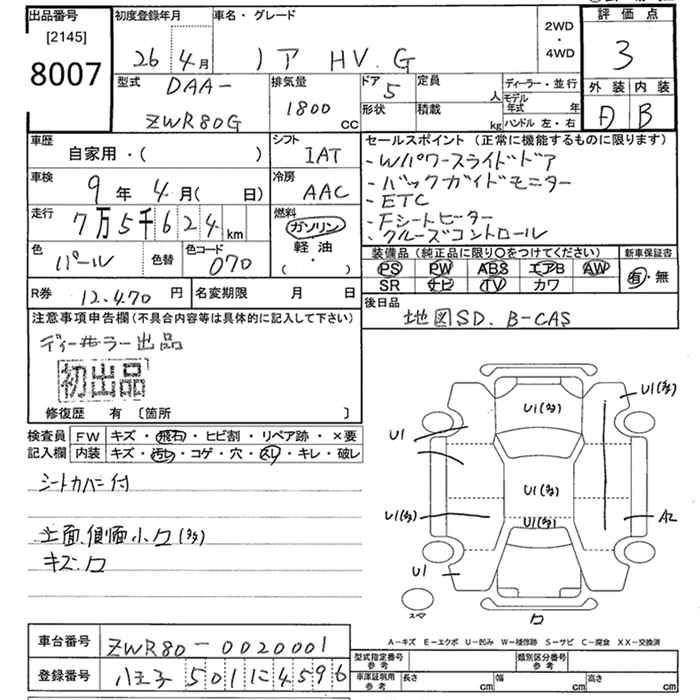 出品番号
[2145]
8007
初度登録年月
26年4月
車名・グレード
ノア HV. G
2WD
・
4WD
評価点
3
外装 内装
D B
型式 DAA-
ZWR80G
排気量
1800
cc
ドア 5
形状
定員
人
積載
kg
ディーラー・並行
モデル年式 年
ハンドル 左・右
車歴
自家用・( )
シフト
IAT
車検
9年 4月( 日)
冷房
AAC
走行 7万5千624km
燃料
ガソリン
軽油
( ・ )
色 パール
色替
色コード 070
R券 12.470円
名変期限 月 日
セールスポイント (正常に機能するものに限ります)
・Wパワースライドドア
・バックガイドモニター
・ETC
・Fシートヒーター
・クルーズコントロール
装備品 (純正品に限り○をつけてください)
新車保証書
PS PW ABS エアB AW
SR ナビ TV カワ
有・無
後日品
地図SD. B-CAS
注意事項申告欄 (不具合内容等は具体的に記入して下さい)
ディーラー出品
初出品
修復歴 有 〔箇所 〕
検査員
記入欄
FW キズ・飛石・ヒビ割・リペア跡・×要
内装 キズ・汚レ・コゲ・穴・スレ・キレ・破レ
シートカバー付
上面.側面小ワ(多)
キズ.ワ
U1(多)
U1(多)
U1
U1(多)
U1(多)
U1(多)
A2
U1
スペア
ワ
A-キズ E-エクボ U-凹み W-補修跡 S-サビ C-腐食 XX-交換済
車台番号 ZWR80-0020001
登録番号 八王子 501 に 4596
型式指定番号
参考
類別区分番号
参考
車庫証明用
参考
長さ cm
幅 cm
高さ cm